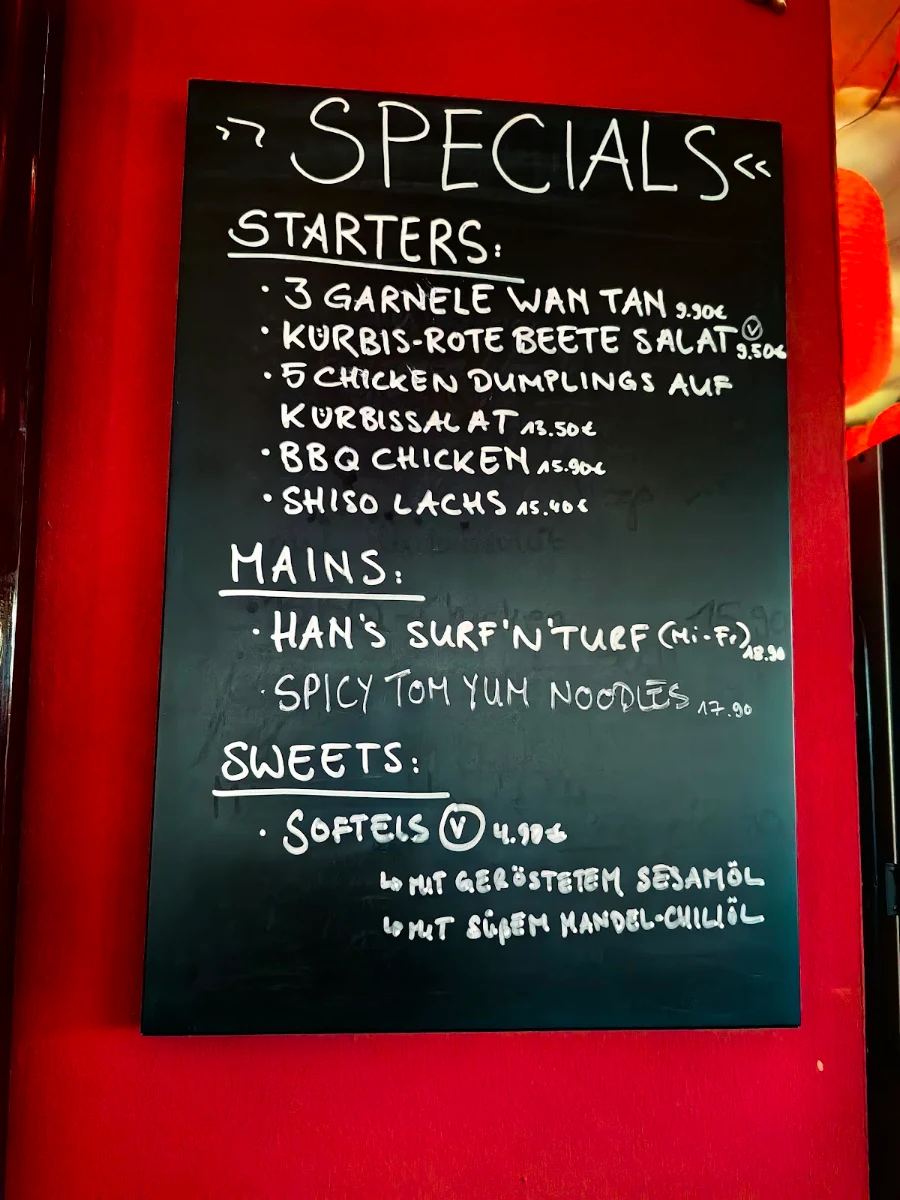 >> SPECIALS <<
STARTERS:
· 3 GARNELE WAN TAN 9.90€
· KÜRBIS-ROTE BEETE SALAT Ⓥ 9.50€
· 5 CHICKEN DUMPLINGS AUF
KÜRBISSALAT 13.50€
· BBQ CHICKEN 15.90€
· SHISO LACHS 15.40€
MAINS:
· HAN'S SURF'N'TURF (Mi-Fr) 18.90
· SPICY TOM YUM NOODLES 17.90
SWEETS:
· SOFTEIS Ⓥ 4.90€
↳ MIT GERÖSTETEM SESAMÖL
↳ MIT SÜßEM MANDEL-CHILIÖL